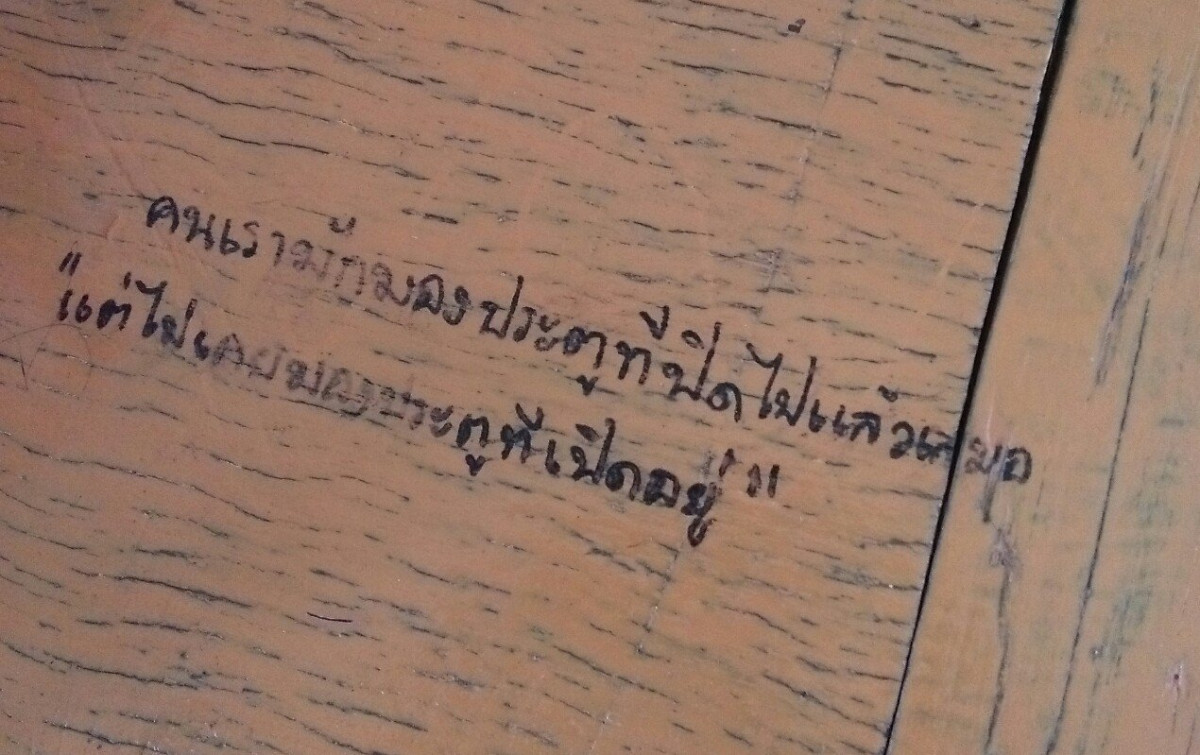 คนเรามักมองประตูที่ปิดไปแล้วเสมอ
"แต่ไม่เคยมองประตูที่เปิดอยู่"